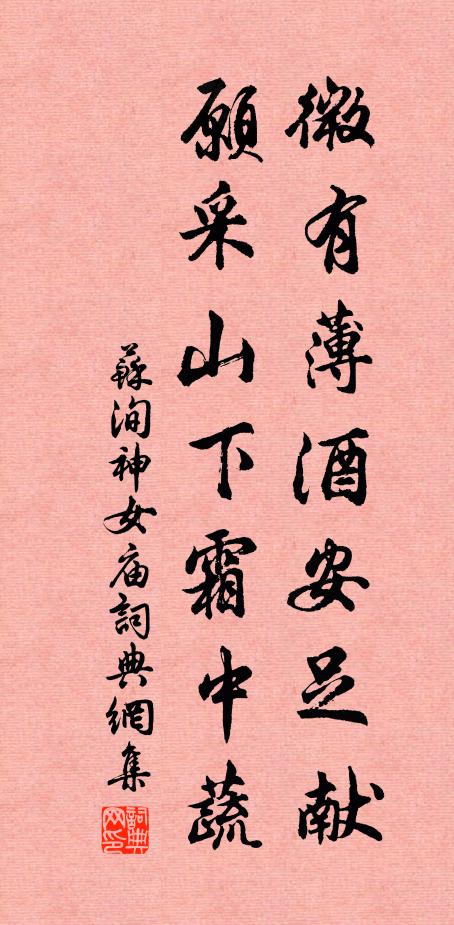 微有薄酒安足献
願采山下霜中蔬
蘇洵神女庙詞典網集
詞典网印